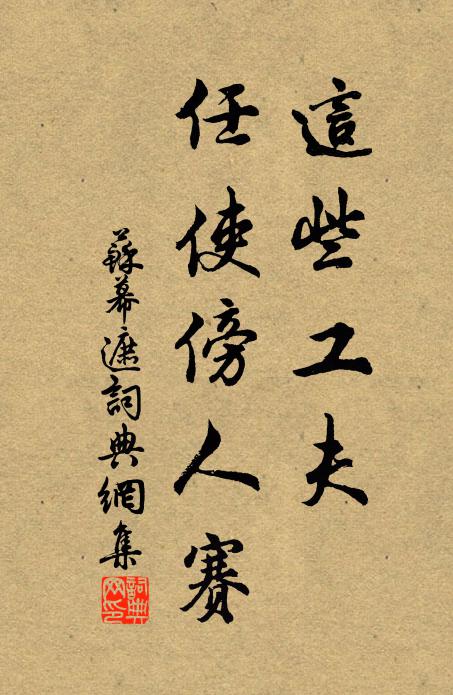 這些工夫
任使傍人賽
蘇幕遮詞典網集
詞典
网印